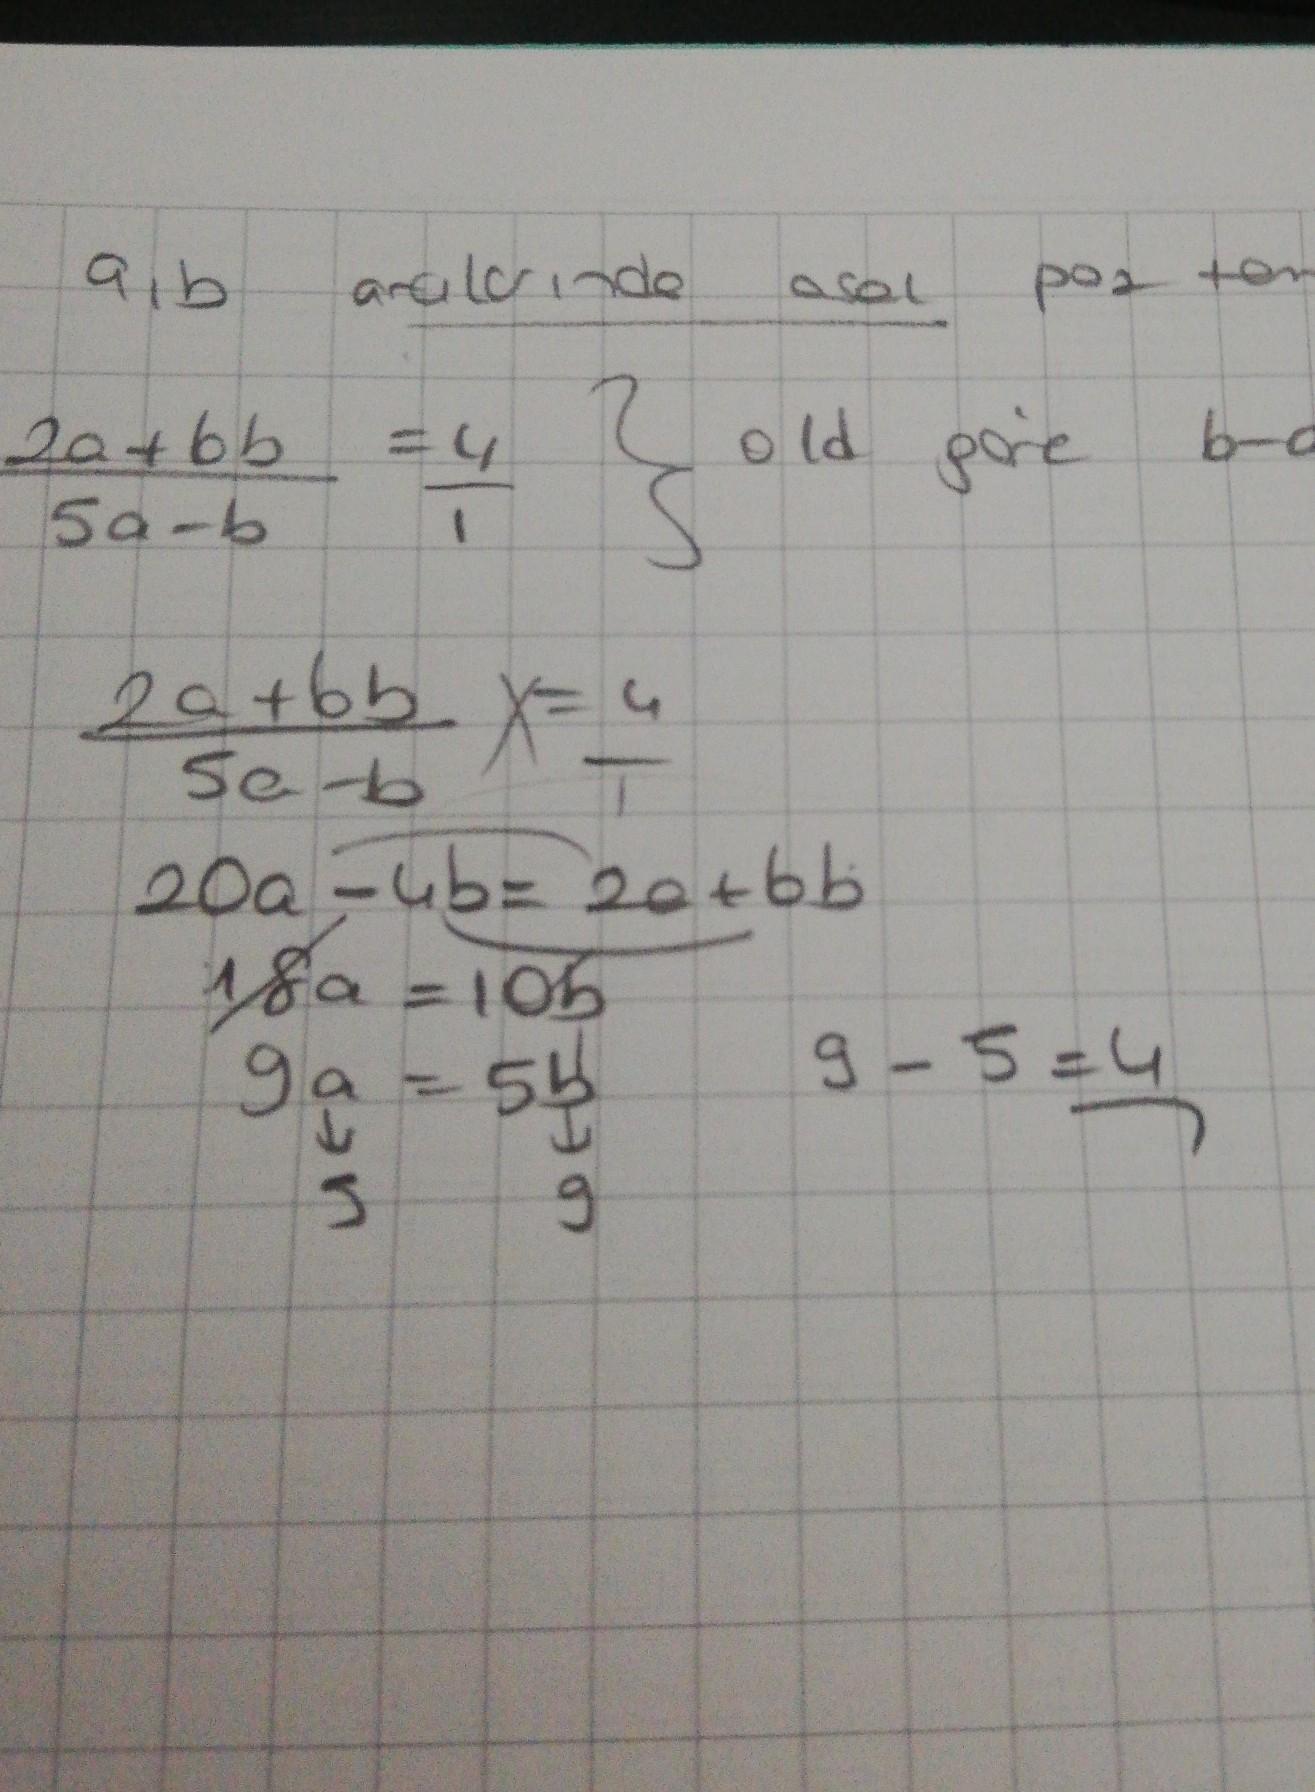 a,b aralarında asal poz tam
2a+6b / 5a-b = 4/1 } old göre b-a
2a+6b / 5a-b X= 4/1
20a-4b=2a+6b
18a=10b
9a=5b 9-5=4
↓ ↓
5 9